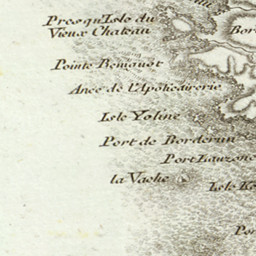 Presqu'Isle du
Vieux Chateau
Bor
Pointe Beniguet
Ance de l'Apoticairerie
Isle Yoline
Port de Borderun
Port Lanzone
la Vache
Isle
Por